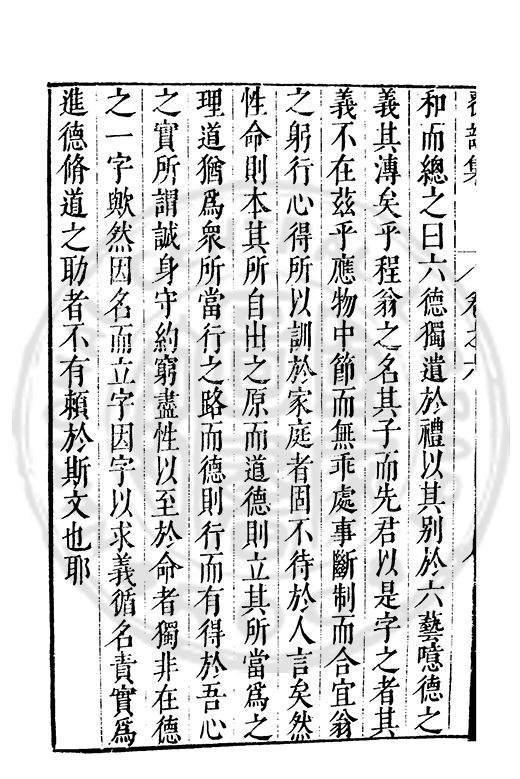 和而總之曰六德獨遺於禮以其别於六藝噫德之
義其漙矣乎程翁之名其子而先君以是字之者其
義不在茲乎應物中節而無乖處事斷制而合宜翁
之躬行心得所以訓於家庭者固不待於人言矣然
性命則本其所自出之原而道德則立其所當爲之
理道猶爲衆所當行之路而德則行而有得於吾心
之實所謂誠身守約窮盡性以至於命者獨非在德
之一字歟然因名而立字因字以求義循名責實爲
進德脩道之助者不有賴於斯文也耶